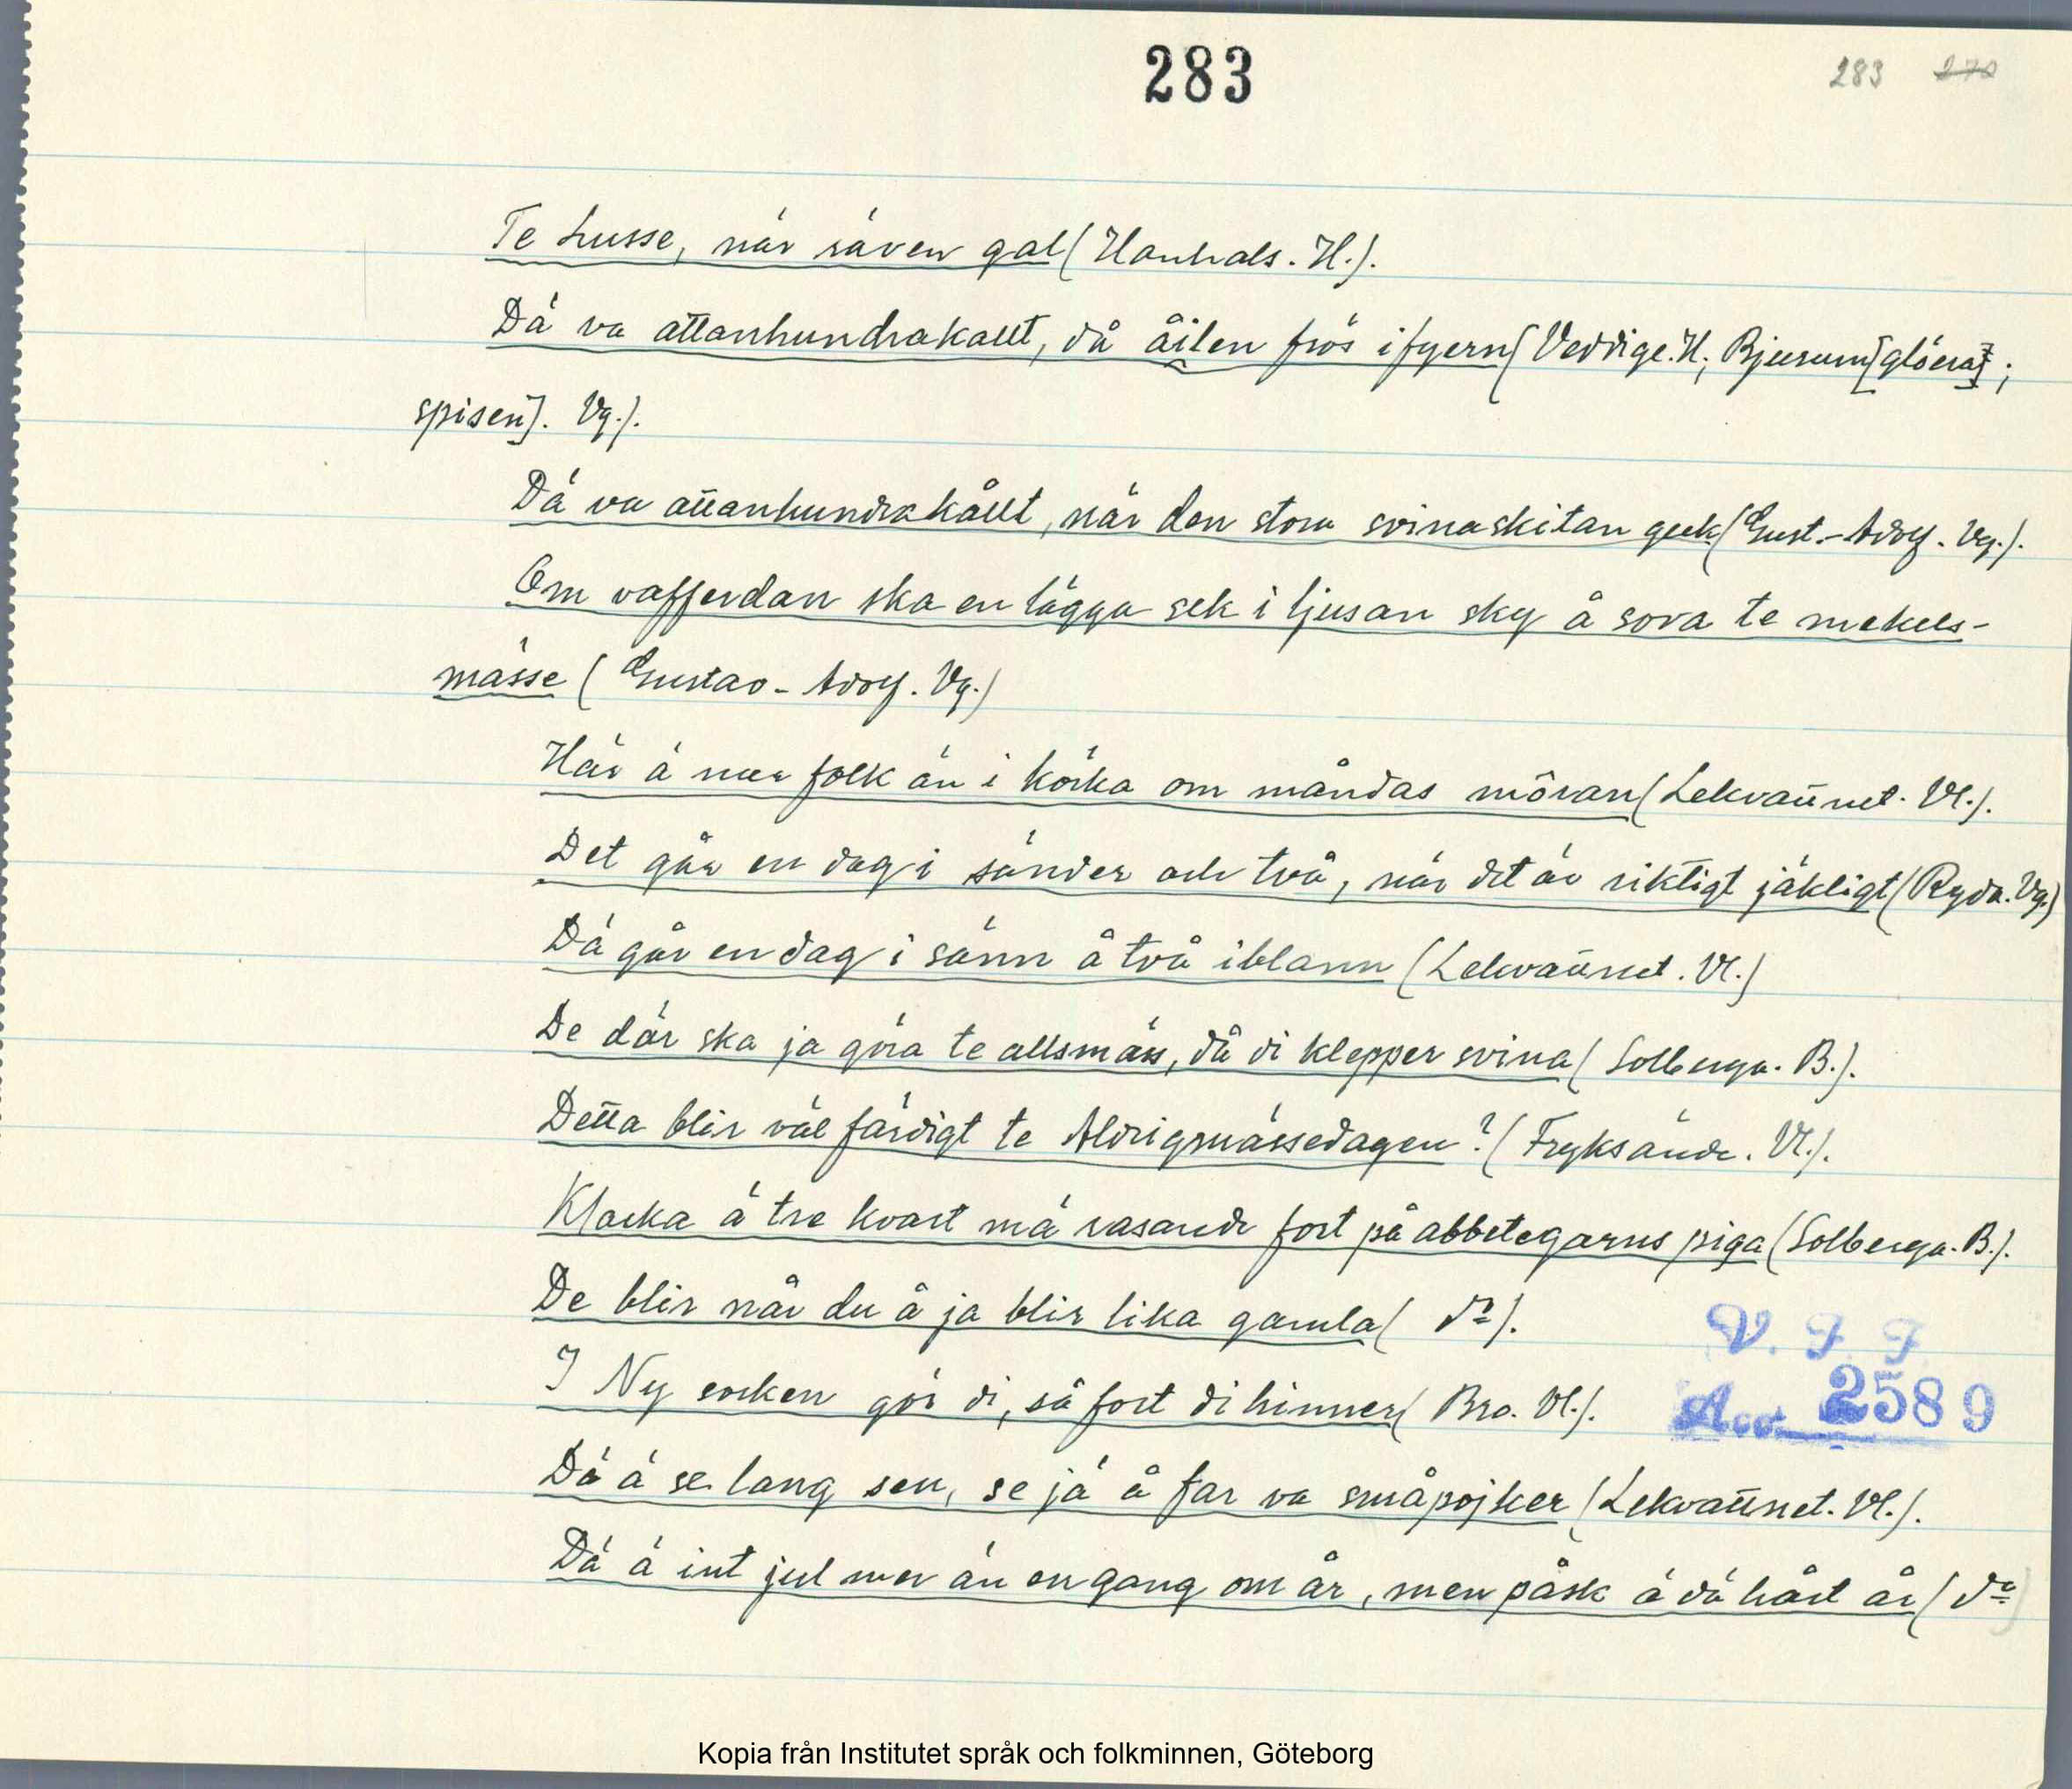 283
283 270
Te Lusse, när räven gal (Hanhals. H.).
Dä va attanhundrakallt, då åilen frös i fyern (Veddige. H.; Bjurum [glöera];
spisen]. Vg.).
Dä va attanhundrakållt, när den stora svinaskitan gek (Gust.-Adolf. Vg.).
Om vafferdan ska en lägga sek i ljusan sky å sova te mekels-
mässe (Gustav-Adolf. Vg.)
Här ä mer folk än i körka om måndas môran (Lekvattnet. Vl.).
Det går en dag i sänder och två, när det är riktigt jäkligt (Ryda. Vg.)
Dä går en dag i sänn å två iblann (Lekvattnet. Vl.)
De där ska ja göra te allsmäss, då di klepper svina (Solberga. B.).
Detta blir väl färdigt te Aldrigmässedagen? (Fryksände. Vl.).
Klocka ä tre kvart mä rasande fort på abbetegarns piga (Solberga. B.).
De blir når du å ja blir lika gamla (do).
I Ny socken gör di, så fort di hinner (Bro. Vl.).
Dä ä se lang sen, se jä å far va småpojker (Lekvattnet. Vl.).
Dä ä int jul mer än en gang om år, men påsk ä dä hårt år (do)
V. F. F.
Acc. 2589
Kopia från Institutet språk och folkminnen, Göteborg